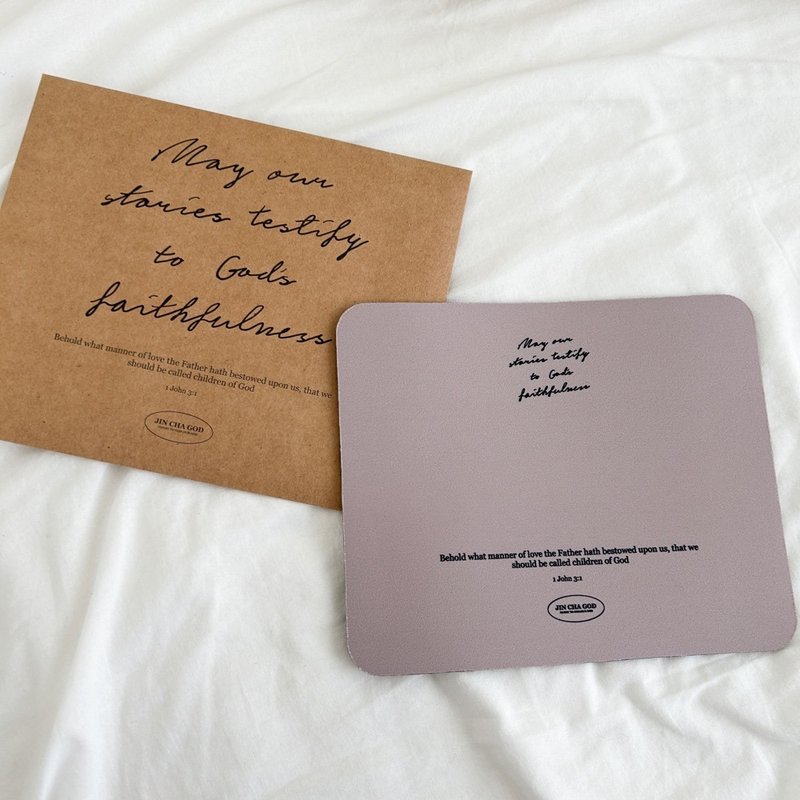 May our
stories testify
to God's
faithfulness
Behold what manner of love the Father hath bestowed upon us, that we
should be called children of God
1 John 3:1
JIN CHA GOD
May our
stories testify
to God's
faithfulness
Behold what manner of love the Father hath bestowed upon us, that we
should be called children of God
1 John 3:1
JIN CHA GOD